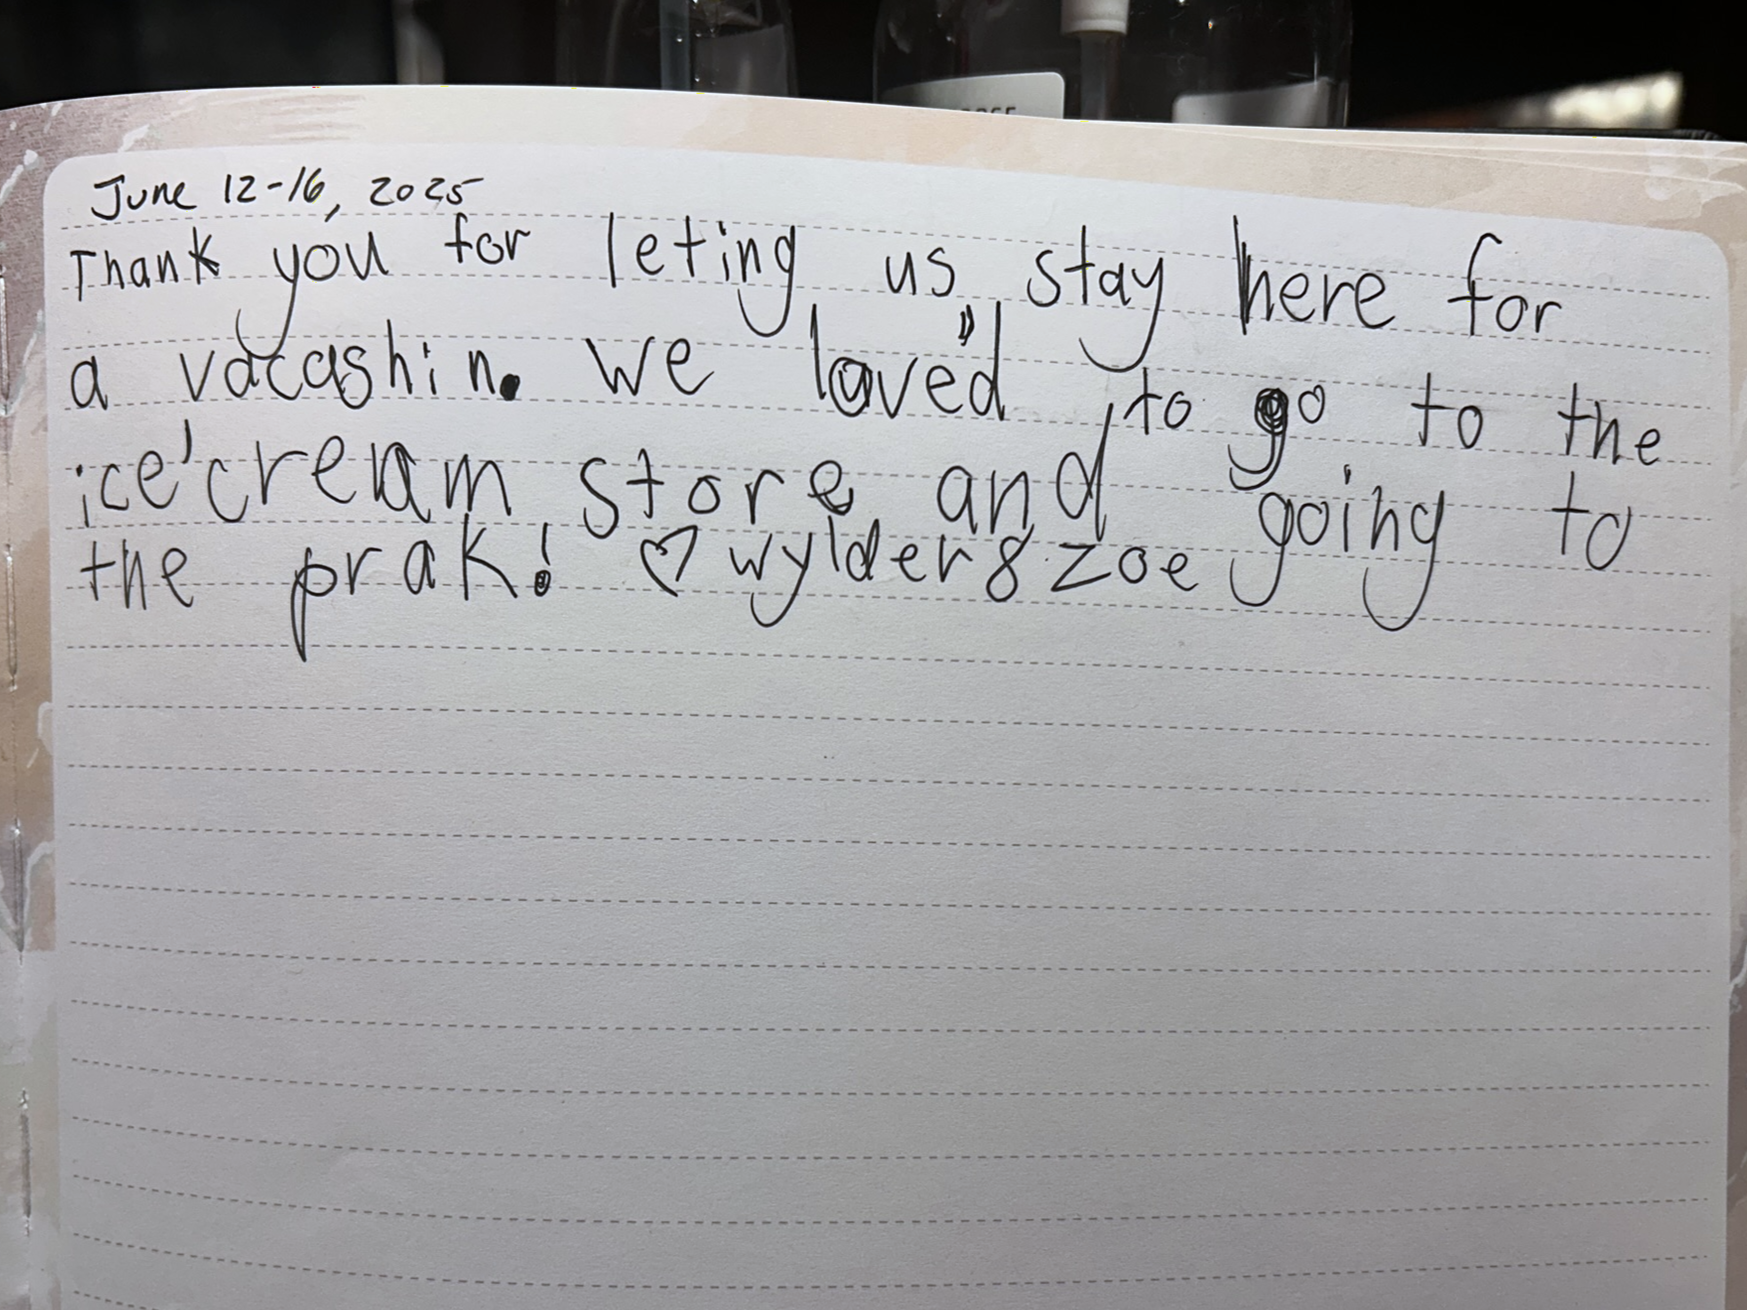 June 12-16, 2025
Thank you for leting us stay here for
a vacashin. we loved to go to the
ice'cream store and going to
the prak! ♡ wylder & zoe